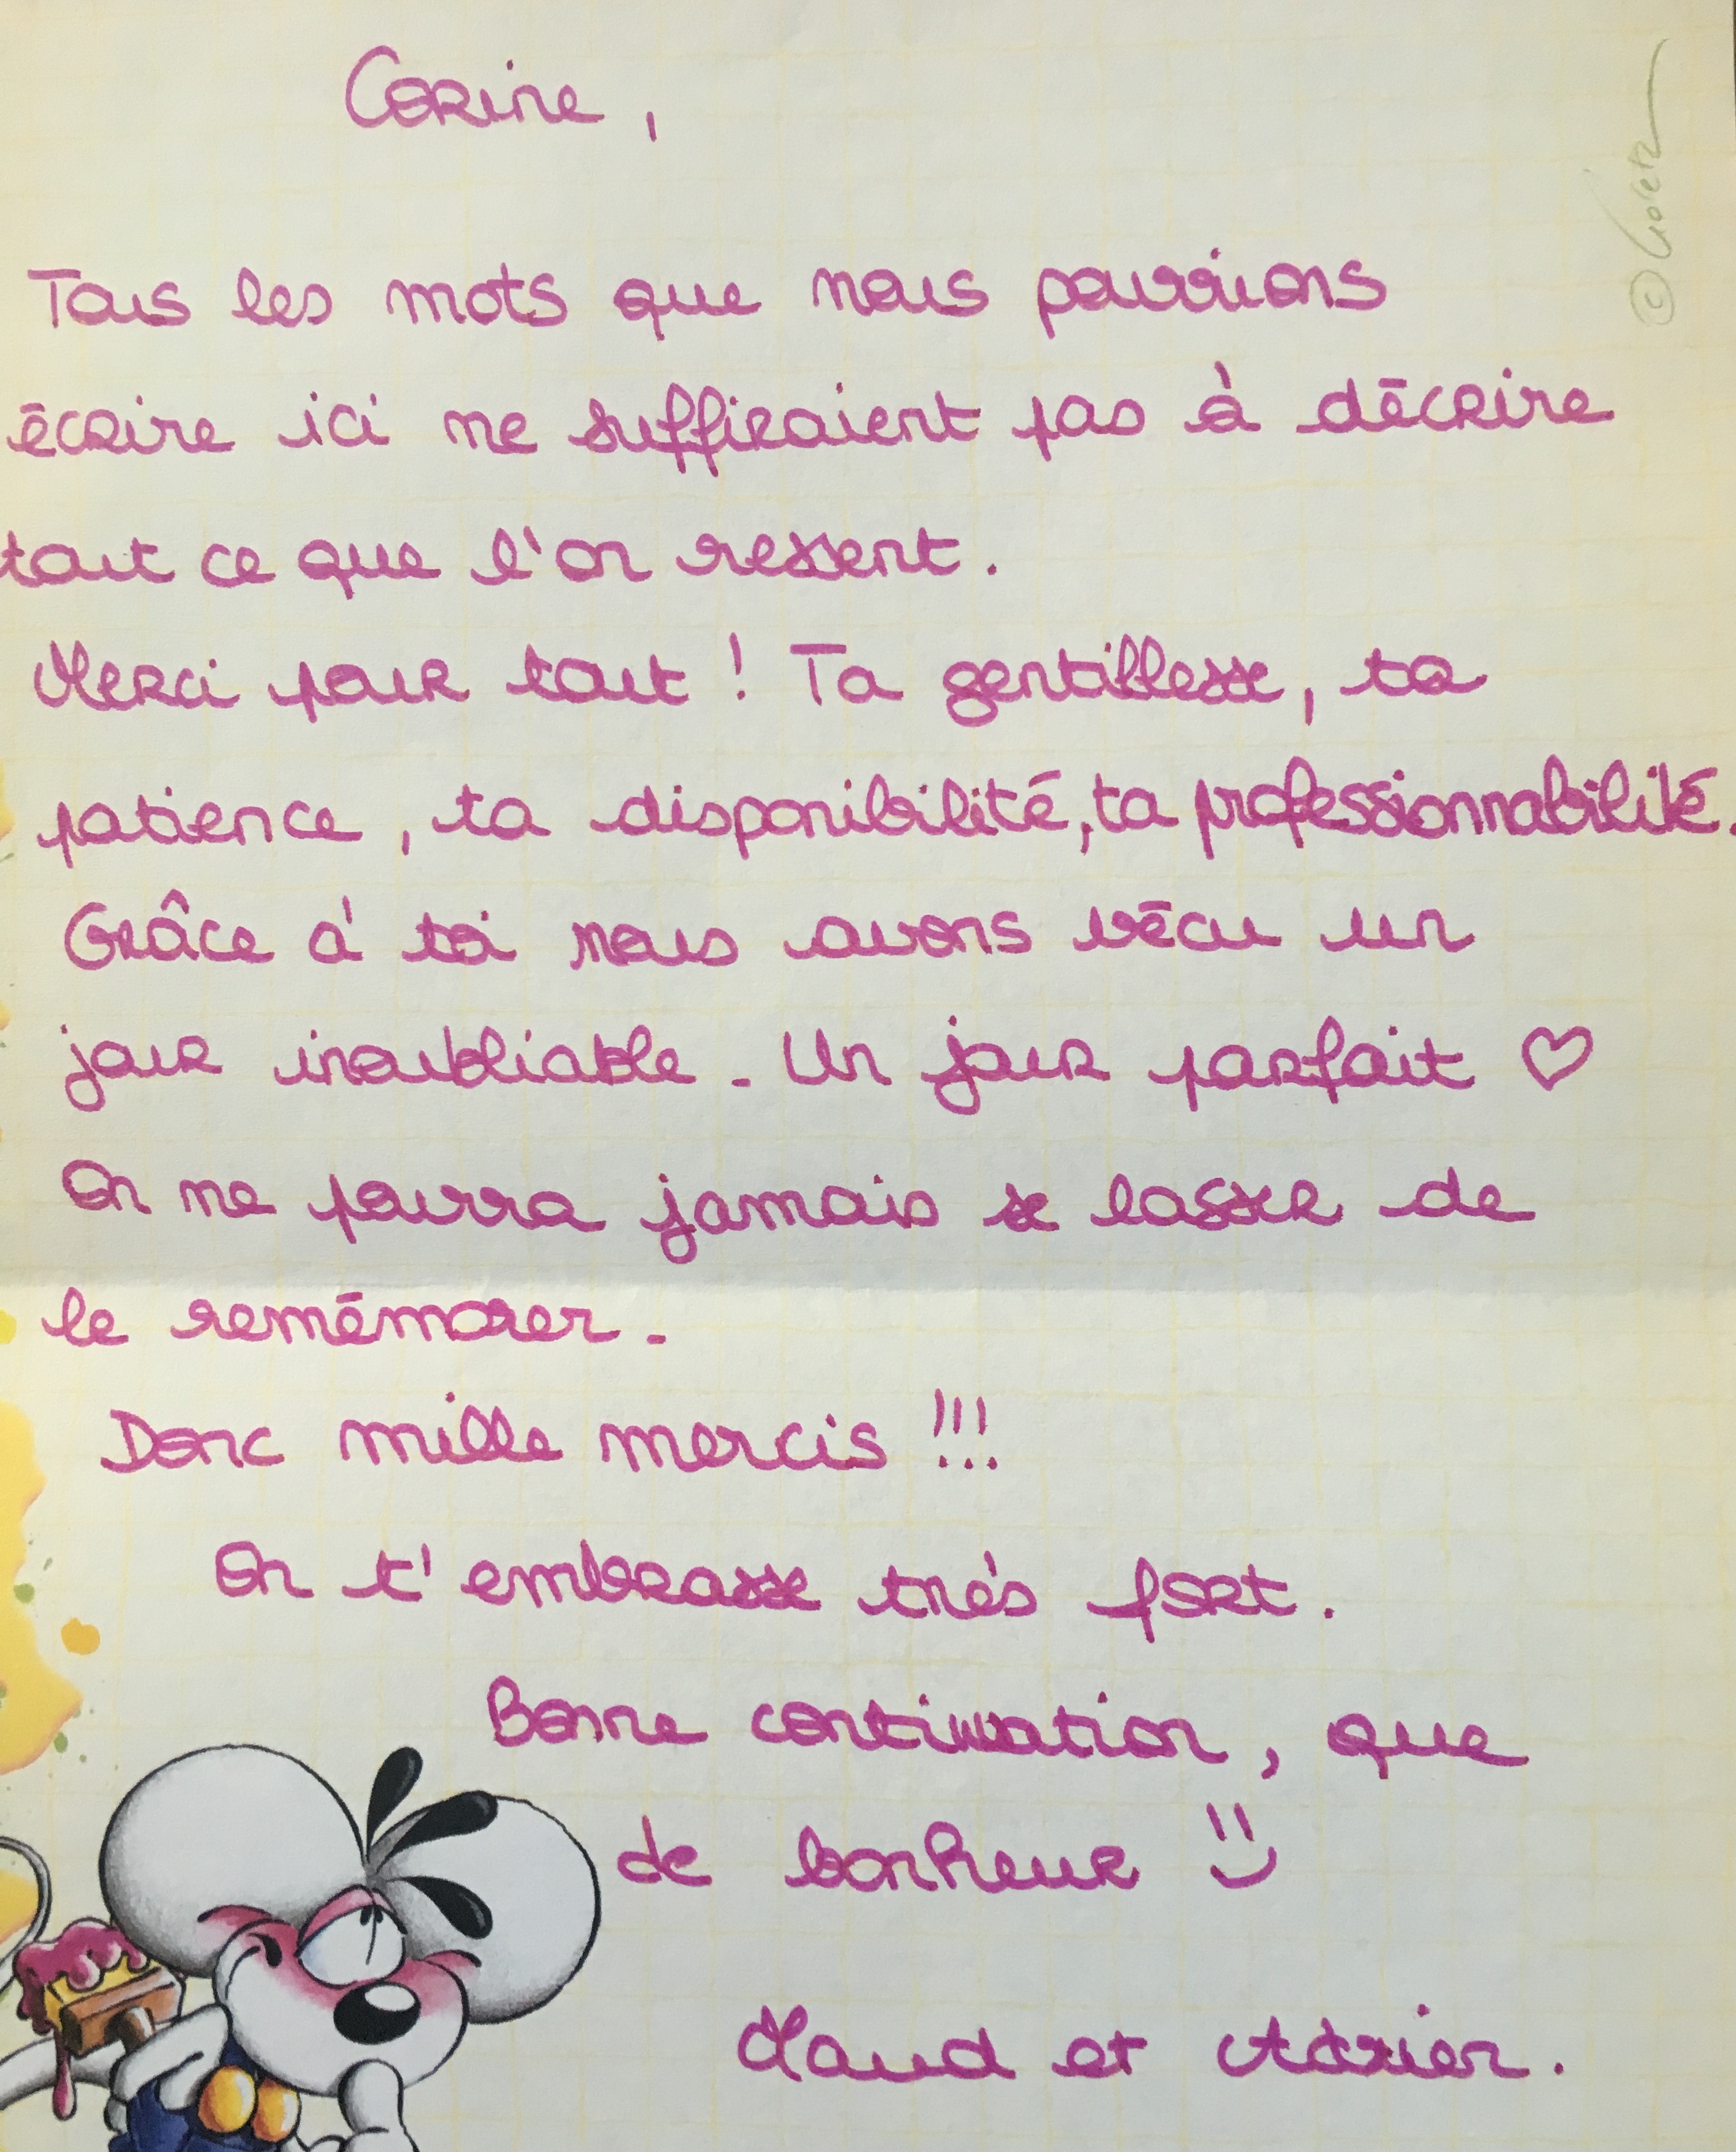 Corine,
© Goletz
Tous les mots que nous pourrions
écrire ici ne suffiraient pas à décrire
tout ce que l'on ressent.
Merci pour tout ! Ta gentillesse, ta
patience, ta disponibilité, ta professionnabilité.
Grâce à toi nous avons vécu un
jour inoubliable. Un jour parfait ♡
On ne pourra jamais se lasser de
le remémorer.
Donc mille mercis !!!
On t'embrasse très fort.
Bonne continuation, que
de bonheur :)
Maud et Adrien.